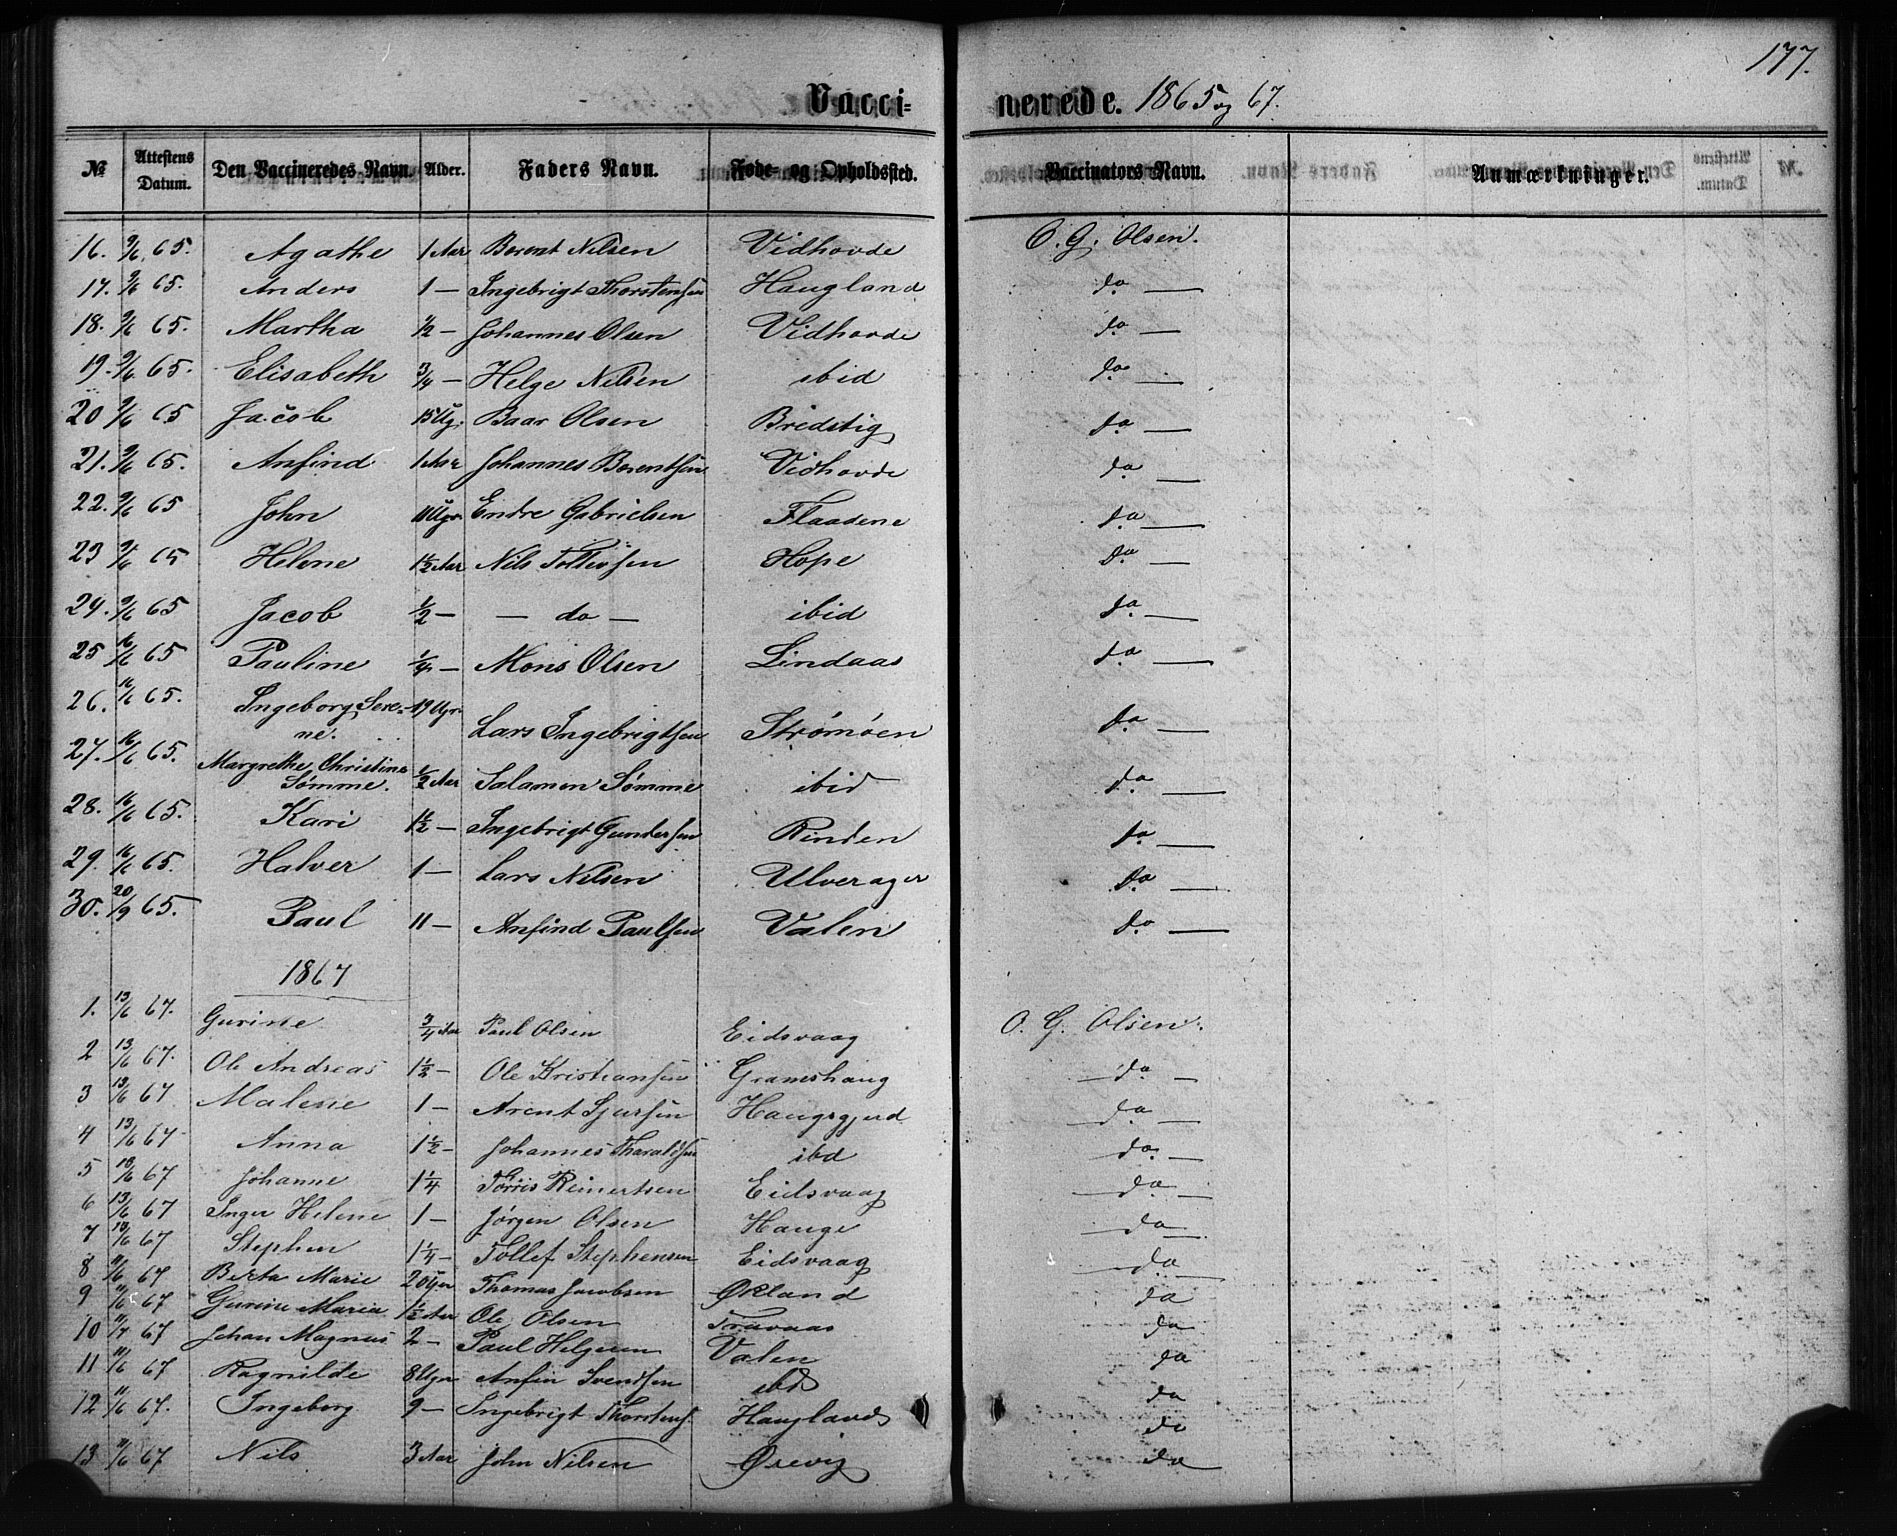 177.
Vacci-nerede. 1865 og 67.
№ Attestens Datum. Den Vaccineredes Navn. Alder. Faders Navn. Føde- og Opholdssted. Vaccinators Navn. Anmærkninger.
16. 9/6 65. Agathe 1 Aar Berent Nilsen Vidhovde O. G. Olsen.
17. 9/6 65. Anders 1 — Ingebrigt Thorstensen Haugland do —
18. 9/6 65. Martha 1/2 — Johannes Olsen Vidhovde do —
19. 9/6 65. Elisabeth 3/4 — Helge Nilsen ibid do —
20 9/6 65 Jacob 15 Ug. Baar Olsen Bredstig do —
21. 9/6 65. Anfind 1 Aar Johannes Berentsen Vidhovde do —
22. 9/6 65 John Ugr Endre Gabrielsen Flaadene do —
23 9/6 65 Helene 1 1/2 Aar Nils Hope do —
24. 9/6 65 Jacob 1/2 — — do — ibid do —
25 16/6 65 Pauline — Mons Olsen Lindaas do —
26. 16/6 65. Ingeborg Sere-ne. 19 Ugr. Lars Ingebrigtsen Strømøen do —
27. 16/6 65. Margrethe Christine Sømme. 1/2 Aar Salamon Sømme ibid do —
28. 16/6 65. Kari 1 1/2 — Ingebrigt Gundersen Rinden do —
29. 16/6 65. Halver 1 — Lars Nilsen Ulverager do —
30. 20/9 65. Paul 11 — Anfind Paulsen Valen do —
1867
1. 13/6 67. Gurine 3/4 Aar Paul Olsen Eidsvaag O. G. Olsen.
2 13/6 67. Ole Andreas 1 1/2 — Ole Kristiansen Gramshaug — do —
3 13/6 67 Malene 1 — Arent Sjursen Haugsgjerd — do —
4 13/6 67 Anna 1 1/2 — Johannes Tharaldsen ibd — do —
5 13/6 67 Johanne 1 1/4 Tørris Reinertsen Eidsvaag — do —
6 13/6 67 Inger Helene 1 — Jørgen Olsen Hauge — do —
7 13/6 67 Stephen 1 1/4 — Tollef Stephensen Eidsvaag — do —
8 67 Berta Marie 20 Ugr Thomas Jacobsen Økland do
9 11/6 67 Gurine Maria 1 1/2 Aar Ole Olsen do
10 67 Johan Magnus 2 — Paul Helgesen Valen do
11 11/6 67 Ragnilde 8 Ugr Anfin Svendsen ibd do
12 11/6 67. Ingeborg 9 — Ingebrigt Thorstens. Haugland do
13 11/6 67 Nils 3 Aar John Nilsen Ørevig do